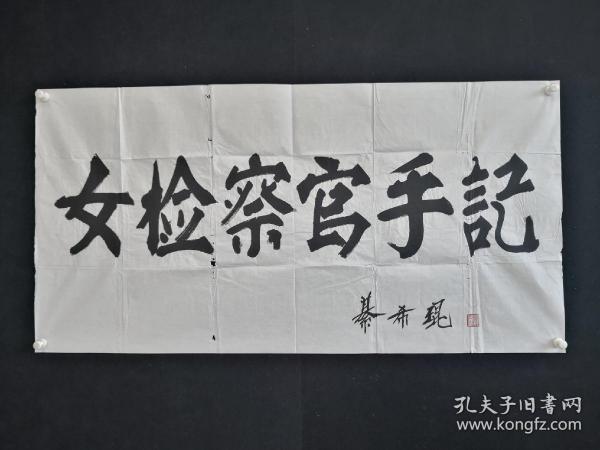 女检察官手記
綦希琨
孔夫子旧書网
www.kongfz.com